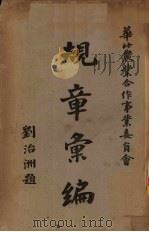 華北農業合作事業委員會
規章彙編
劉治洲題